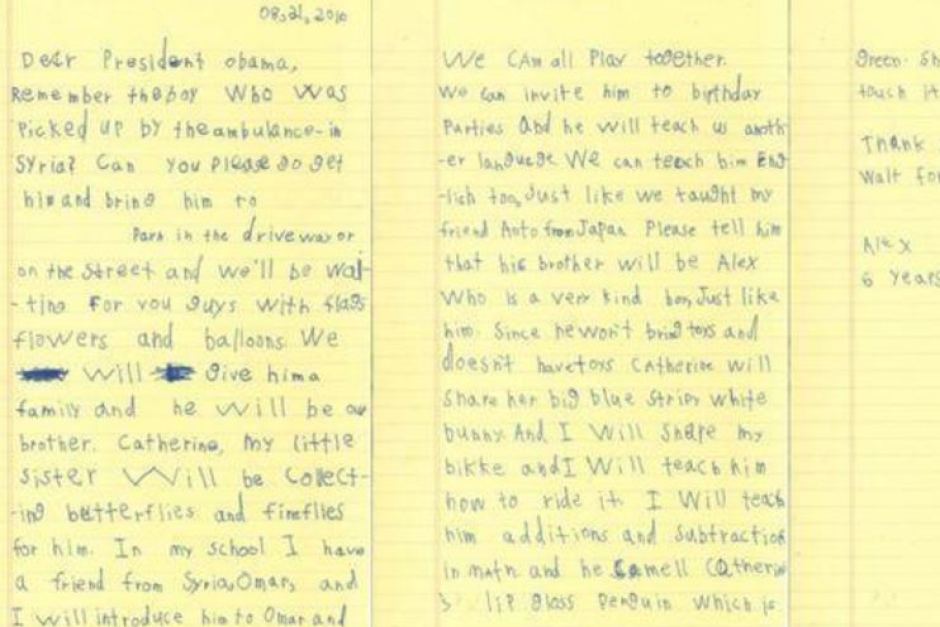 08,21,2016
Dear President obama,
Remember the boy Who Was
Picked up by the ambulance- in
Syria? Can you please go get
him and bring him to
Park in the driveway or
on the street and we'll be wai-
-ting for you guys with flags
flowers and balloons. We
Will give him a
family and he will be our
brother. Catherine, my little
sister Will be collect-
-ing butterflies and fireflies
for him. In my school I have
a friend from Syria, Omar, and
I will introduce him to Omar and
We CAn all Play together.
We can invite him to birthday
Parties And he will teach us anoth-
-er language. We can teach him Eng-
-lish too, Just like we taught my
friend Aoto from Japan. Please tell him
that his brother will be Alex
Who is a very kind boy, Just like
him. Since he won't bring toys and
doesn't have toys Catherine will
share her big blue stripy white
bunny. And I Will share my
bikke and I Will teach him
how to ride it. I Will teach
him additions and subtraction
in math. and he smell Catherin
's lip gloss penguin which is
green. Sh
touch it
Thank
Wait for
Alex
6 years